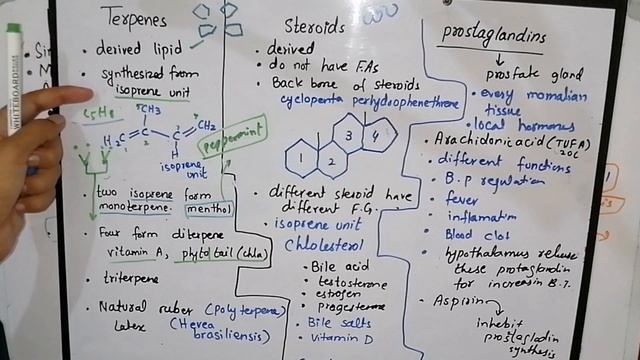 Terpenes
• derived lipid
• synthesized from
isoprene unit
C5H8
CH3
H2C = C - C = CH2
H
1
2
3
isoprene
unit
peppermint
• two isoprene form
monoterpene. menthol
• Four form diterpene
vitamin A, phytol tail (chla)
• triterpene
• Natural ruber (Polyterpene)
Latex (Hevea
brasiliensis)
Steroids
• derived
• do not have F.As
• Back bone of steroids
cyclopenta perhydrophenethrene
1 2 3 4
• different steroid have
different F.G.
isoprene unit
Chlolesterol
• Bile acid
• testosterone
• estrogen
• progesterone
• Bile salts
• vitamin D
prostaglandins
prostate gland
• every momalian
tissue
• local hormones
• Arachidonic acid (TUFA)
20C
• different functions
• B.P regulation
• fever
• inflamation
• Blood clot
• hypothalamus release
these protaglandin
for increasin B.T.
- Aspirin
inhibit
prostagladin
synthesis